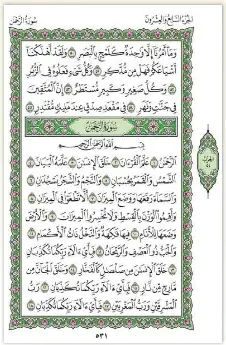 الجزء السابع والعشرون
سورة الرحمن
وَمَا أَمْرُنَا إِلَّا وَٰحِدَةٌ كَلَمْحٍ بِالْبَصَرِ ٥٠ وَلَقَدْ أَهْلَكْنَا
أَشْيَاعَكُمْ فَهَلْ مِن مُّدَّكِرٍ ٥١ وَكُلُّ شَيْءٍ فَعَلُوهُ فِي الزُّبُرِ
٥٢ وَكُلُّ صَغِيرٍ وَكَبِيرٍ مُّسْتَطَرٌ ٥٣ إِنَّ الْمُتَّقِينَ
فِي جَنَّٰتٍ وَنَهَرٍ ٥٤ فِي مَقْعَدِ صِدْقٍ عِندَ مَلِيكٍ مُّقْتَدِرٍ ٥٥
سُورَةُ الرَّحْمَٰن
بِسْمِ اللَّهِ الرَّحْمَٰنِ الرَّحِيمِ
الرَّحْمَٰنُ ١ عَلَّمَ الْقُرْءَانَ ٢ خَلَقَ الْإِنسَٰنَ ٣ عَلَّمَهُ الْبَيَانَ ٤
الشَّمْسُ وَالْقَمَرُ بِحُسْبَانٍ ٥ وَالنَّجْمُ وَالشَّجَرُ يَسْجُدَانِ ٦
وَالسَّمَاءَ رَفَعَهَا وَوَضَعَ الْمِيزَانَ ٧ أَلَّا تَطْغَوْا فِي الْمِيزَانِ ٨
وَأَقِيمُوا الْوَزْنَ بِالْقِسْطِ وَلَا تُخْسِرُوا الْمِيزَانَ ٩ وَالْأَرْضَ
وَضَعَهَا لِلْأَنَامِ ١٠ فِيهَا فَٰكِهَةٌ وَالنَّخْلُ ذَاتُ الْأَكْمَامِ ١١
وَالْحَبُّ ذُو الْعَصْفِ وَالرَّيْحَانُ ١٢ فَبِأَيِّ ءَالَاءِ رَبِّكُمَا تُكَذِّبَانِ
١٣ خَلَقَ الْإِنسَٰنَ مِن صَلْصَٰلٍ كَالْفَخَّارِ ١٤ وَخَلَقَ الْجَانَّ مِن
مَّارِجٍ مِّن نَّارٍ ١٥ فَبِأَيِّ ءَالَاءِ رَبِّكُمَا تُكَذِّبَانِ ١٦ رَبُّ
الْمَشْرِقَيْنِ وَرَبُّ الْمَغْرِبَيْنِ ١٧ فَبِأَيِّ ءَالَاءِ رَبِّكُمَا تُكَذِّبَانِ ١٨
٥٣١